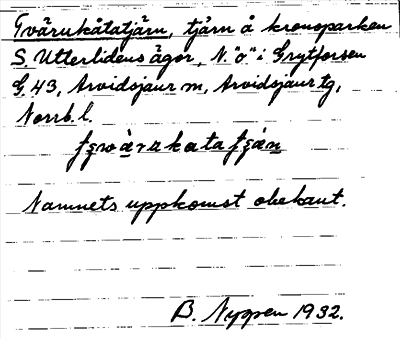 Tvärukåtatjärn, tjärn å kronoparken
S. Utterlidens ägor, N. "ö" i Grytforsen
G. 43, Arvidsjaur sn, Arvidsjaur tg,
Norrb. l.
Namnets uppkomst obekant.
B. Nygren 1932.